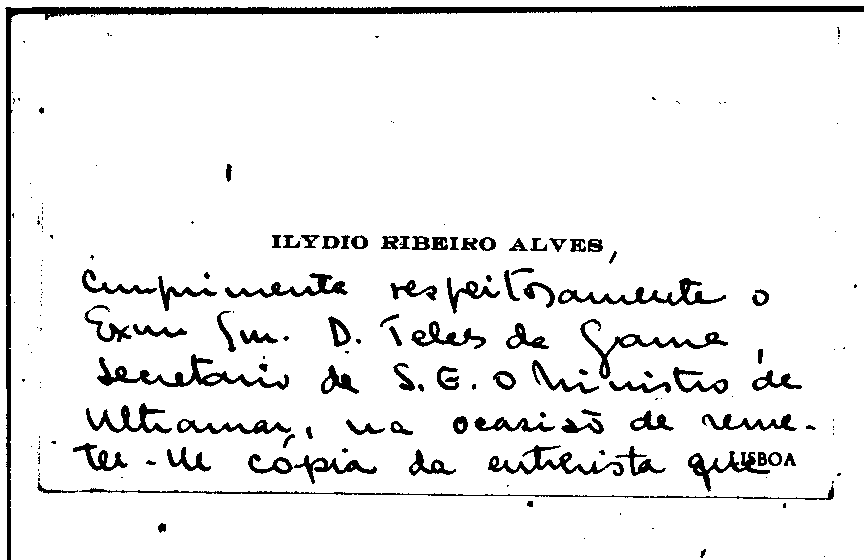 ILYDIO RIBEIRO ALVES,
cumprimenta respeitosamente o
Exmo Snr. D. Teles da Gama,
secretário de S. E. o Ministro do
Ultramar, na ocasião de reme-
ter-lhe cópia da entrevista que
LISBOA